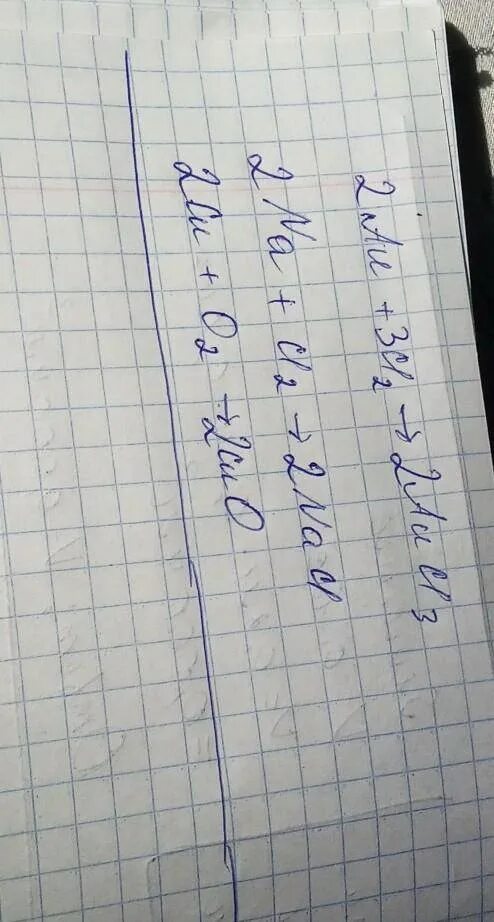 2Au + 3Cl₂ → 2AuCl₃
2Na + Cl₂ → 2NaCl
2Cu + O₂ → 2CuO